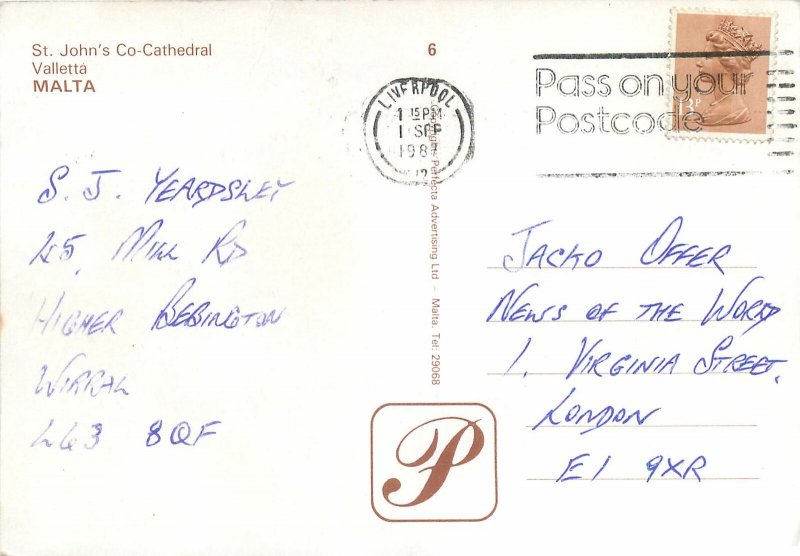 St. John's Co-Cathedral
Valletta
MALTA
6
LIVERPOOL
1 15 PM
1 SEP
1987
Pass on your
Postcode
13P
S. J. YEARDSLEY
45, MILL RD
HIGHER BEBINGTON
WIRRAL
L63 8QF
Perfecta Advertising Ltd – Malta. Tel: 29068
JACKO OFFER
NEWS OF THE WORLD
1, VIRGINIA STREET,
LONDON
E1 9XR
P